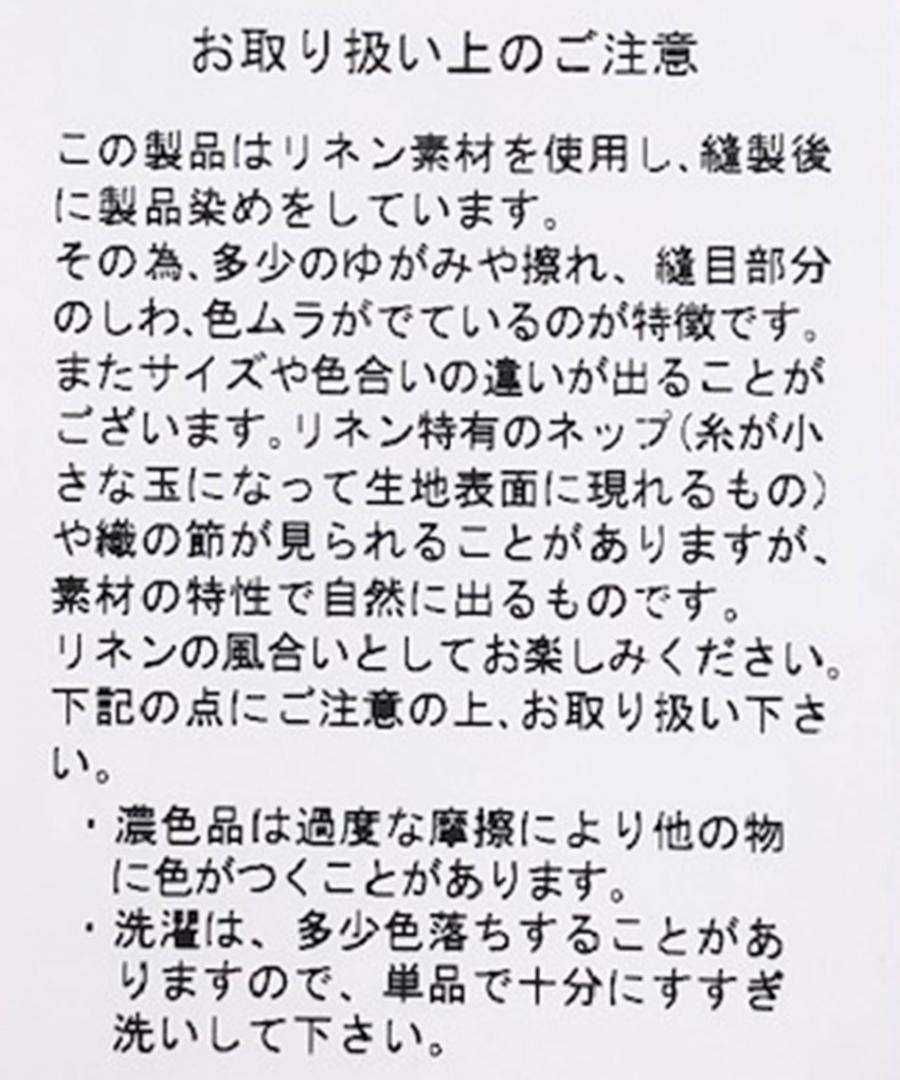 お取り扱い上のご注意
この製品はリネン素材を使用し、縫製後
に製品染めをしています。
その為、多少のゆがみや擦れ、縫目部分
のしわ、色ムラがでているのが特徴です。
またサイズや色合いの違いが出ることが
ございます。リネン特有のネップ(糸が小
さな玉になって生地表面に現れるもの)
や織の節が見られることがありますが、
素材の特性で自然に出るものです。
リネンの風合いとしてお楽しみください。
下記の点にご注意の上、お取り扱い下さ
い。
・濃色品は過度な摩擦により他の物
に色がつくことがあります。
・洗濯は、多少色落ちすることがあ
りますので、単品で十分にすすぎ
洗いして下さい。